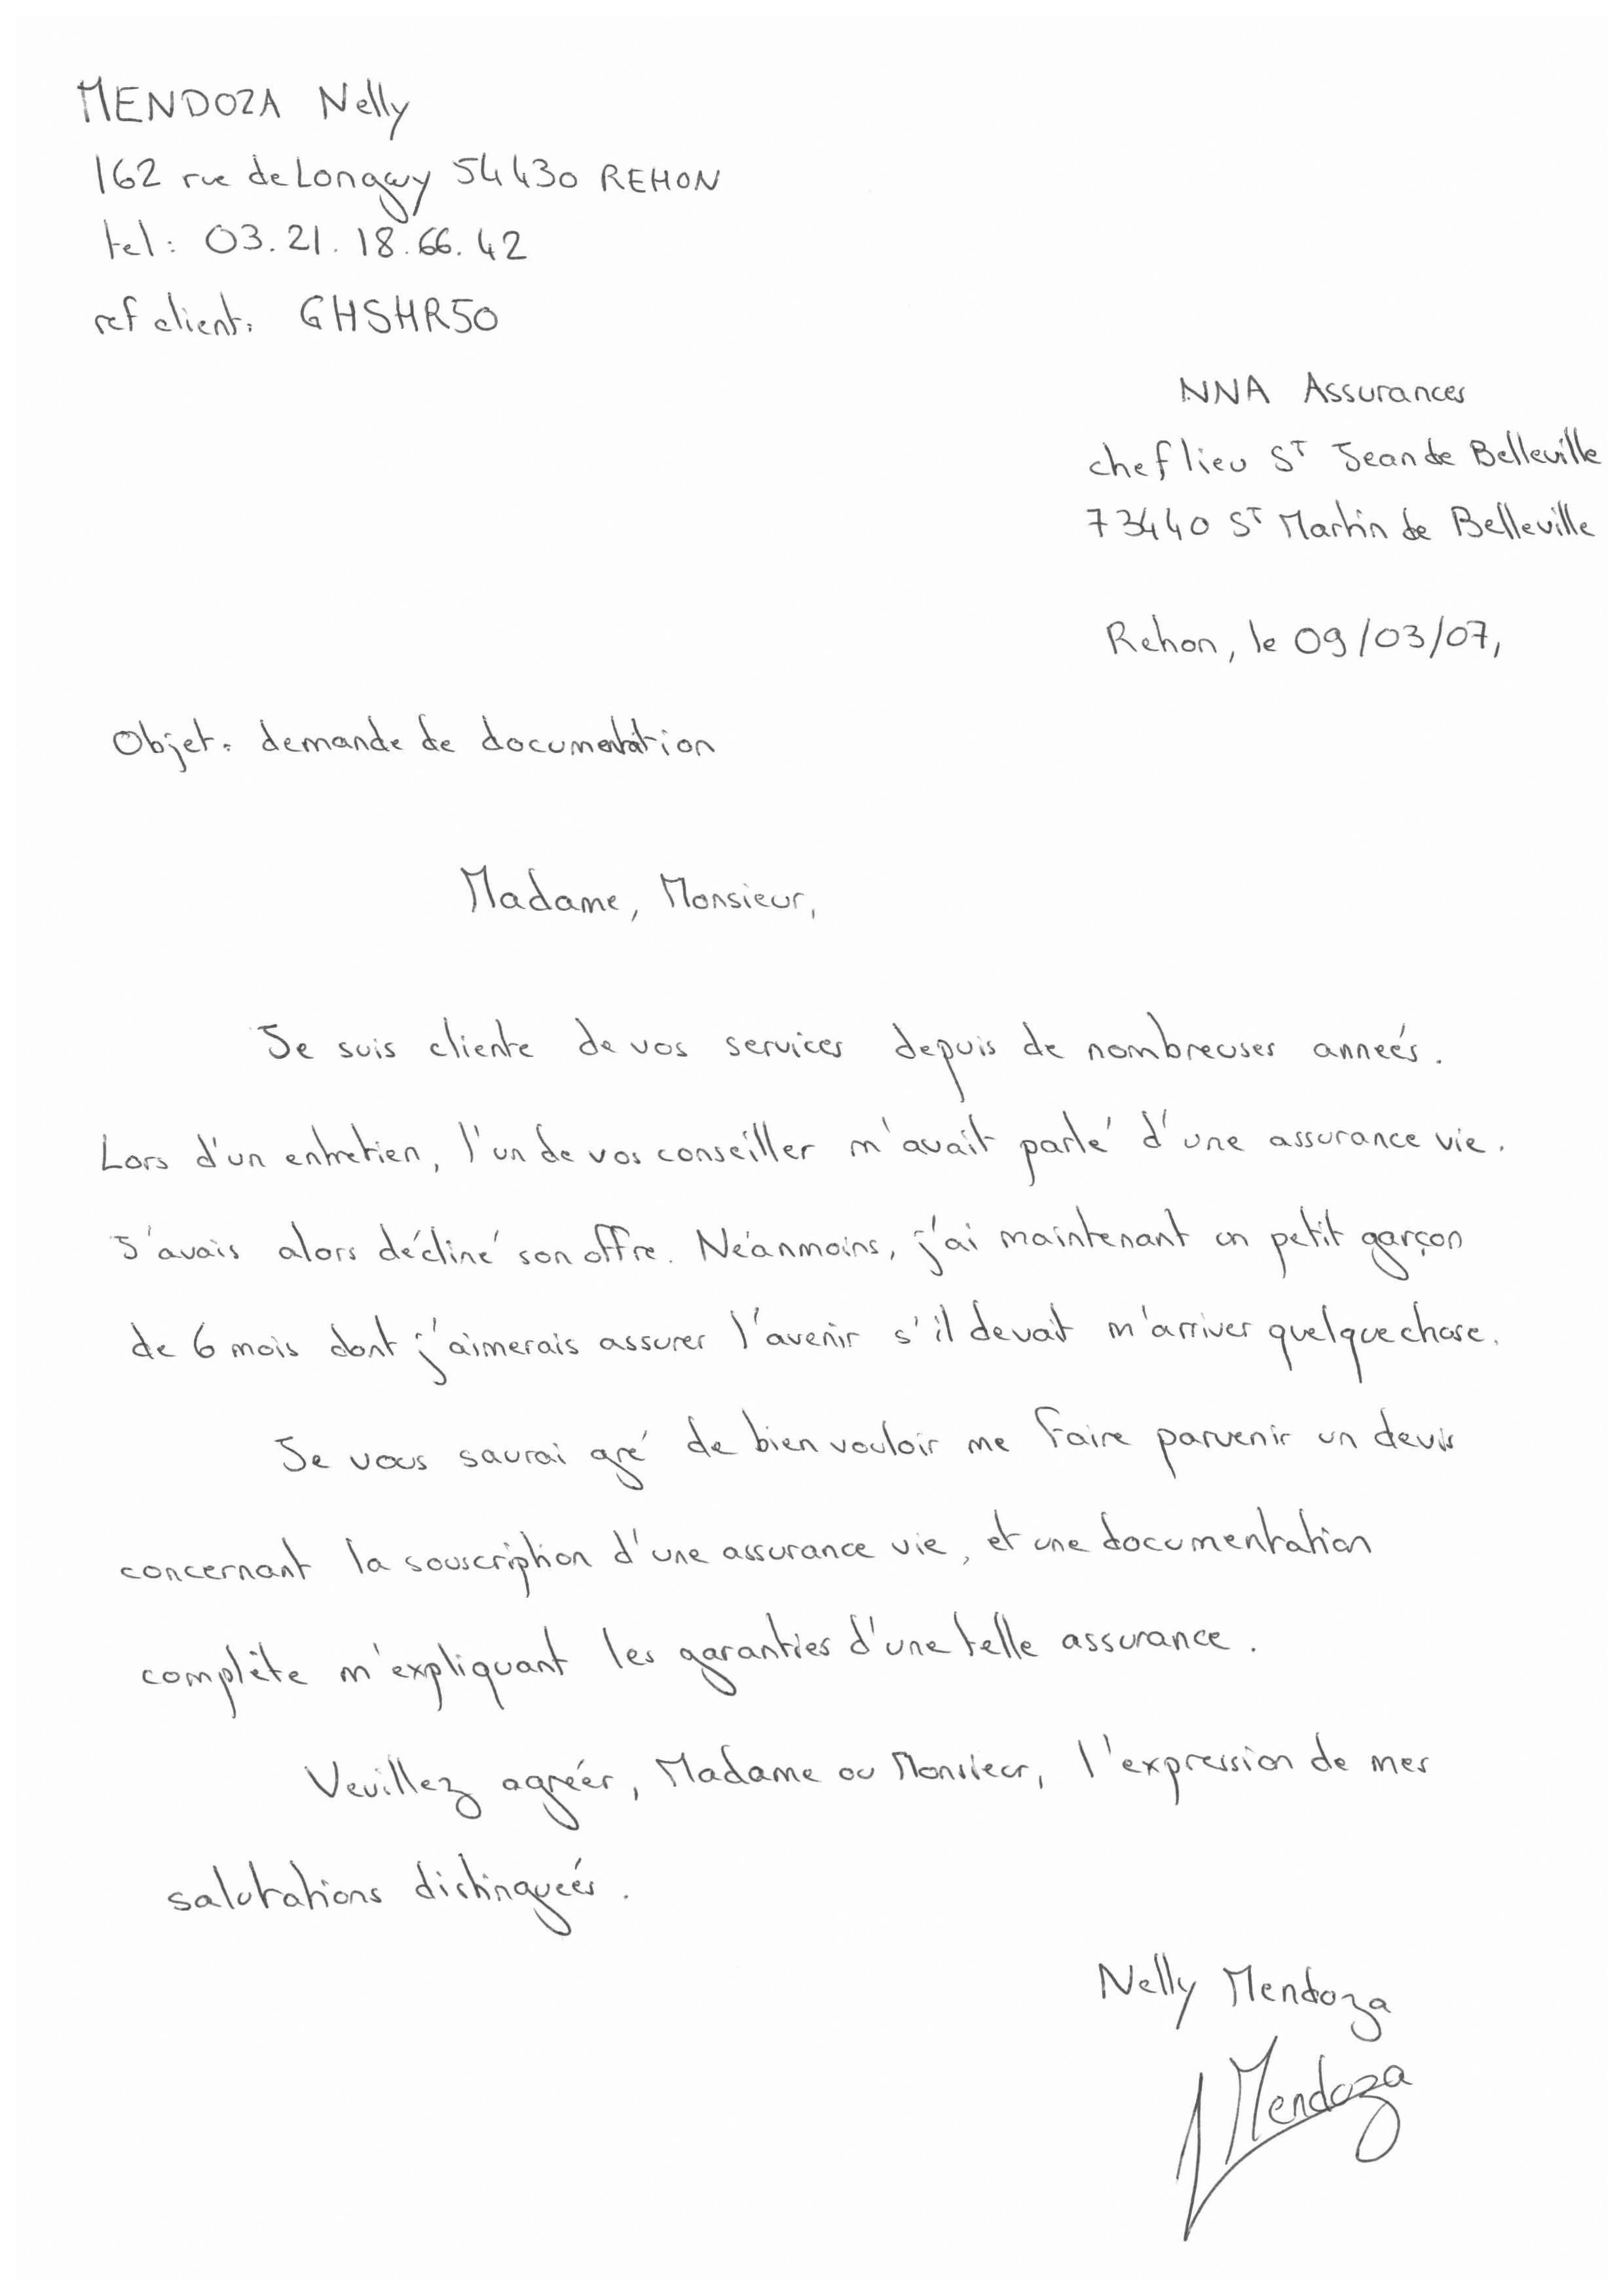 MENDOZA Nelly
162 rue de Longwy 54430 REHON
tel: 03.21.18.66.42
ref client: GHSHR50
NNA Assurances
chef lieu ST Jean de Belleville
73440 ST Martin de Belleville
Rehon, le 09/03/07,
Objet: demande de documentation
Madame, Monsieur,
Je suis cliente de vos services depuis de nombreuses années.
Lors d'un entretien, l'un de vos conseiller m'avait parlé d'une assurance vie.
J'avais alors décliné son offre. Néanmoins, j'ai maintenant un petit garçon
de 6 mois dont j'aimerais assurer l'avenir s'il devait m'arriver quelque chose.
Je vous saurai gré de bien vouloir me faire parvenir un devis
concernant la souscription d'une assurance vie, et une documentation
complète m'expliquant les garanties d'une telle assurance.
Veuillez agréer, Madame ou Monsieur, l'expression de mes
salutations distinguées.
Nelly Mendoza
Mendoza